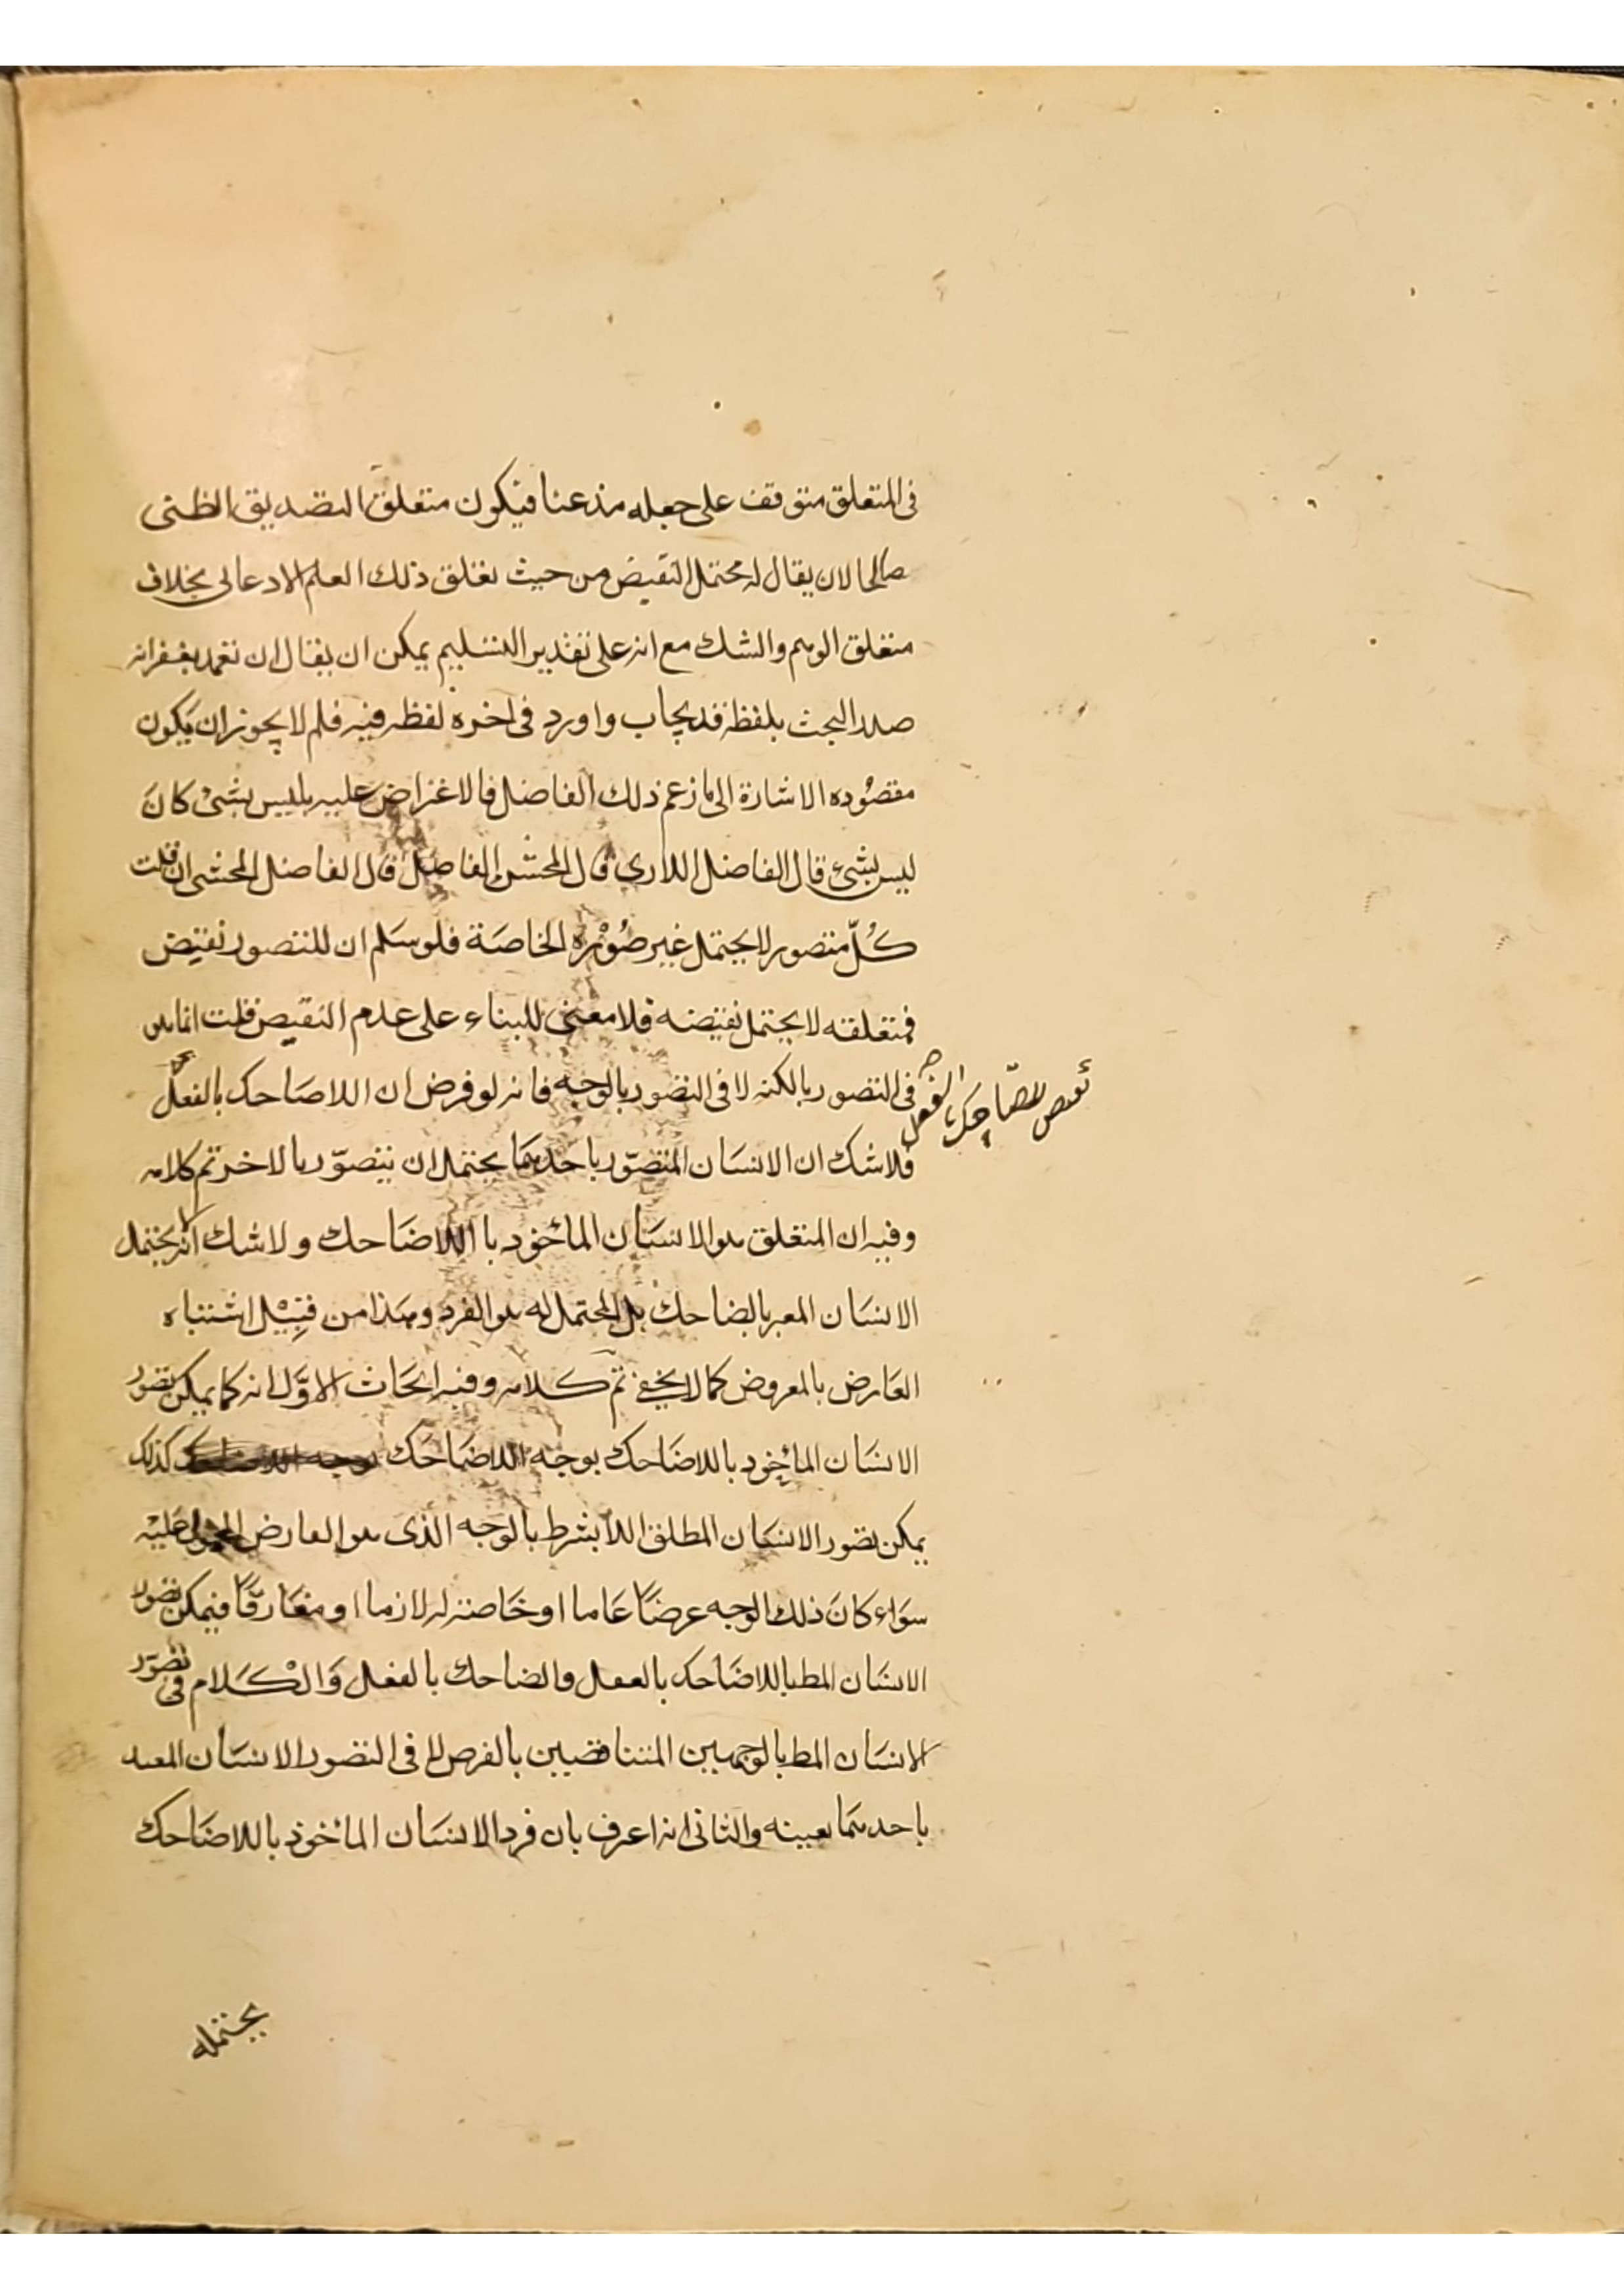 فى المتعلق متوقف على جعله مذعنا فيكون متعلق التصديق الظنى
صالحا لان يقال له محتمل النقيض من حيث تعلق ذلك العلم الادعالى بخلاف
متعلق الوهم والشك مع انه على تقدير التسليم يمكن ان يقال ان تغمد بغفرانه
صدر البحث بلفظة قد يجاب واورد فى اخره لفظه فيه فلم لا يجوز ان يكون
مقصوده الاشارة الى ما زعم ذلك الفاضل فالاعتراض عليه بليس بشئ كان
ليس بشئ قال الفاضل اللارى قال المحشى الفاضل قال الفاضل المحشى ان قلت
كلّ متصور لا يحتمل غير صورة الخاصة فلو سلم ان للتصور نقيض
فمتعلقه لا يحتمل نقيضه فلا معنى للبناء على عدم النقيض قلت انما هو
فى التصور بالكنه لا فى التصور بالوجه فانه لو فرض ان اللاضاحك بالفعل
نقيض للضاحك بالفعل
فلا شك ان الانسان المتصوّر باحدهما يحتمل ان يتصوّر بالاخر تم كلامه
وفيه ان المتعلق هو الانسان المأخوذ با اللاضاحك ولا شك انه لا يحتمل
الانسان المعبر بالضاحك بل المحتمل له هو الفرد وهذا من قبيل اشتباه
العارض بالمعروض كما لا يخفى تم كلامه وفيه ابحاث الاوّل انه كما يمكن تصور
الانسان المأخوذ باللاضاحك بوجه اللاضاحك كذلك
يمكن تصور الانسان المطلق اللابشرط بالوجه الذى هو العارض المحمول عليه
سواء كان ذلك الوجه عرضا عاما او خاصة له لازما او مفارقا فيمكن تصور
الانسان المط باللاضاحك بالفعل والضاحك بالفعل والكلام فى تصوّر
الانسان المط بالوجهين المتناقضين بالفرض لا فى التصور الانسان المقيد
باحدهما بعينه والثانى انه اعرف بان فرد الانسان المأخوذ باللاضاحك
يحتمله